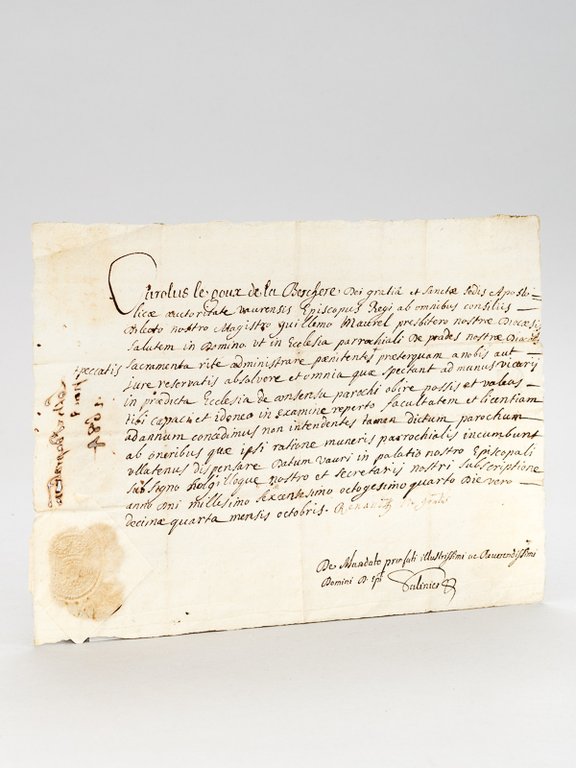 Carolus le goux de la Berchere Dei gratiâ et Sanctæ Sedis Aposto=
licæ autoritate vaurensis Episcopus Regi ab omnibus consiliis
Dilecto nostro Magistro guillelmo Maurel presbitero nostræ Diœcesis
Salutem in Domino. Vt in Ecclesia parrochiali De prades nostræ Diœcesis
Sacramenta rite administrare pœnitentes preterquam a nobis aut
peccatis
Jure reservatis absolvere et omnia quæ spectant ad munus vicarij
in prædicta Ecclesia de consensu parochi obire possis et valeas
tibi capaci et idoneo in examine reperto facultatem et licentiam
ad annum concedimus non intendentes tamen dictum parochum
ab oneribus quæ ipsi ratione muneris parrochialis incumbunt
vllatenus dispensare Datum vauri in palatio nostro Episcopali
sub signo nostro et secretarij nostri subscriptione
anno Dni millesimo sexcentesimo octogesimo quarto Die vero
decima quarta mensis octobris.
De Mandato præfati illustrissimi ac Reverendissimi
Domini D. Epi